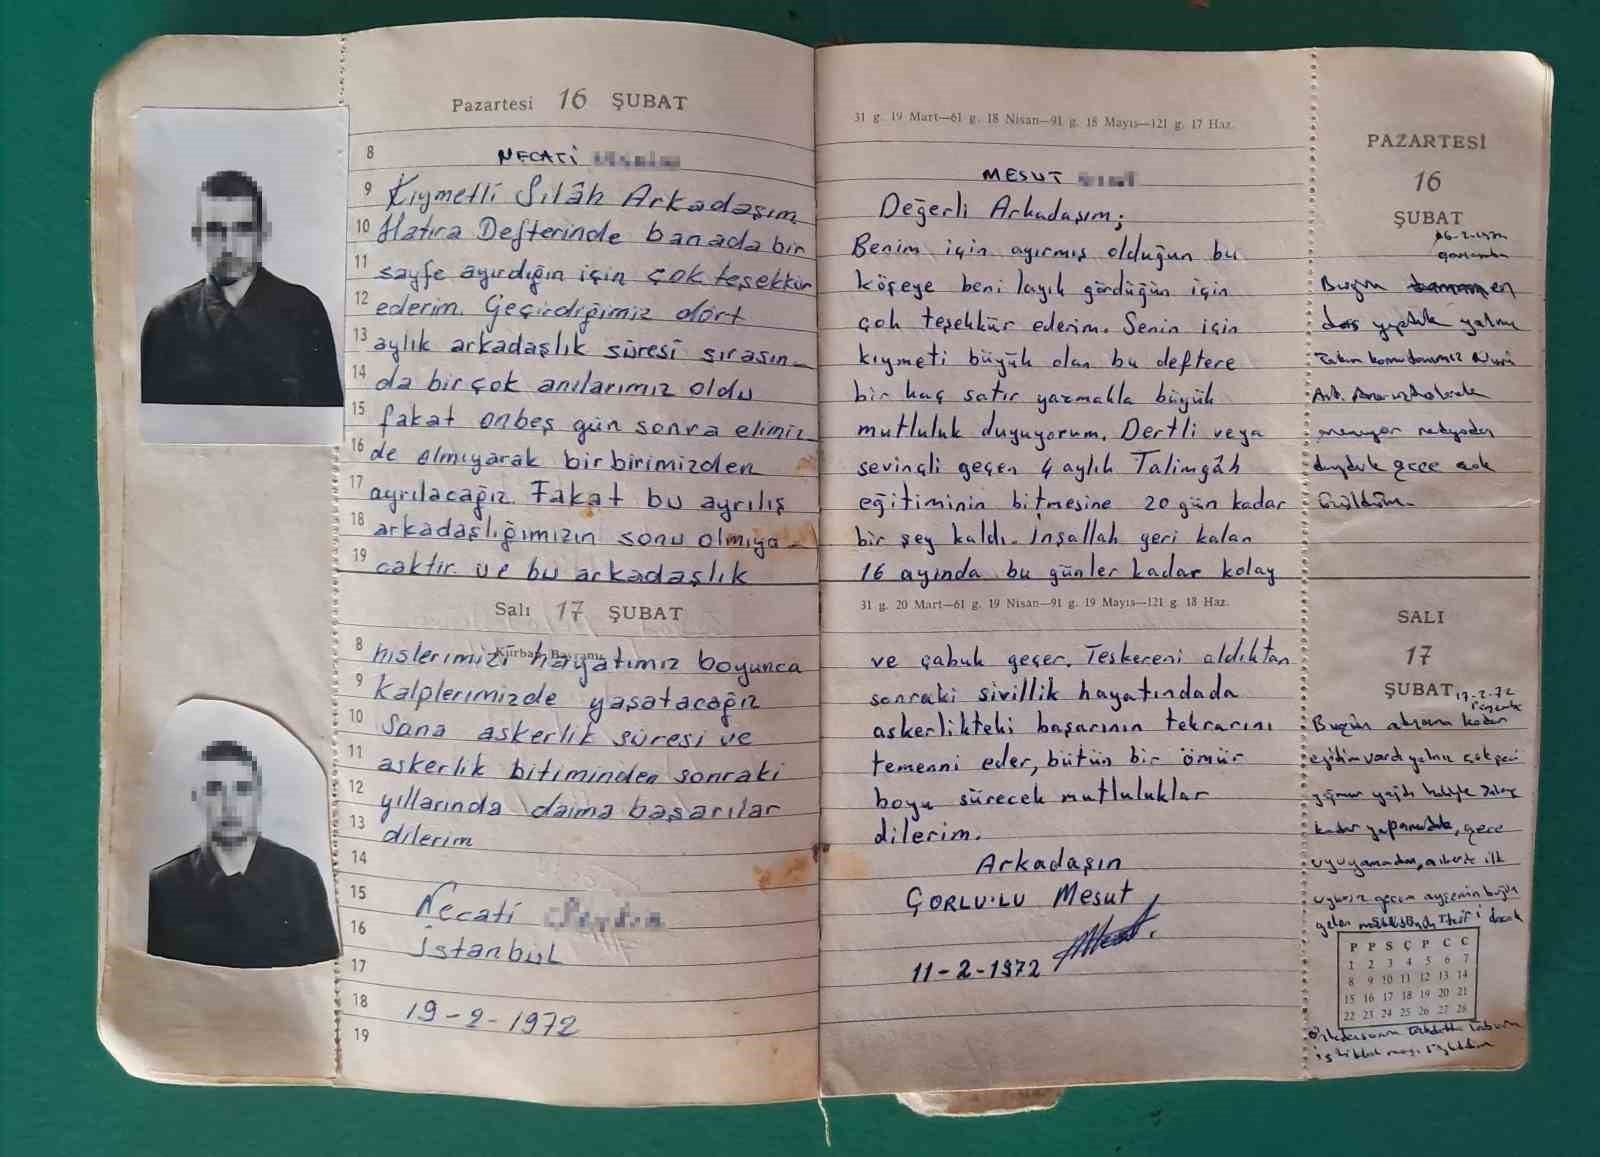 Pazartesi 16 ŞUBAT
8
NECATİ
9 Kıymetli Silâh Arkadaşım
10 Hatıra Defterinde banada bir
11 sayfe ayırdığın için çok teşekkür
12 ederim. Geçirdiğimiz dört
13 aylık arkadaşlık süresi sırasın-
14 da birçok anılarımız oldu
15 fakat onbeş gün sonra elimiz
16 de olmıyarak birbirimizden
17 ayrılacağız. Fakat bu ayrılış
18 arkadaşlığımızın sonu olmıya-
19 caktır. ve bu arkadaşlık
Salı 17 ŞUBAT
Kurban Bayramı
8 hislerimizi hayatımız boyunca
9 kalplerimizde yaşatacağız
10 Sana askerlik süresi ve
11 askerlik bitiminden sonraki
12 yıllarında daima başarılar
13 dilerim
14
15 Necati
16 İstanbul
17
18 19-2-1972
19
31 g. 19 Mart—61 g. 18 Nisan—91 g. 18 Mayıs—121 g. 17 Haz.
MESUT
Değerli Arkadaşım;
Benim için ayırmış olduğun bu
köşeye beni layık gördüğün için
çok teşekkür ederim. Senin için
kıymeti büyük olan bu deftere
bir kaç satır yazmakla büyük
mutluluk duyuyorum. Dertli veya
sevinçli geçen 4 aylık Talimgâh
eğitiminin bitmesine 20 gün kadar
bir şey kaldı. İnşallah geri kalan
16 ayında bu günler kadar kolay
31 g. 20 Mart—61 g. 19 Nisan—91 g. 19 Mayıs—121 g. 18 Haz.
ve çabuk geçer. Teskereni aldıktan
sonraki sivillik hayatındada
askerlikteki başarının tekrarını
temenni eder, bütün bir ömür
boyu sürecek mutluluklar
dilerim.
Arkadaşın
ÇORLU'LU Mesut
11-2-1972
PAZARTESİ
16
ŞUBAT
16-2-1972
Bugün
ders yaptık yalnız
Takım komutanımız
duyduk gece çok
üzüldüm.
SALI
17
ŞUBAT 17-2-72
Perşembe
Bugün akşama kadar
eğitim vardı yalnız
yağmur yağdı
kadar yapamadık, gece
uyuyamadım, askerde ilk
uykusuz gecem ayşenin bugün
gelen
P P S Ç P C C
1 2 3 4 5 6 7
8 9 10 11 12 13 14
15 16 17 18 19 20 21
22 23 24 25 26 27 28